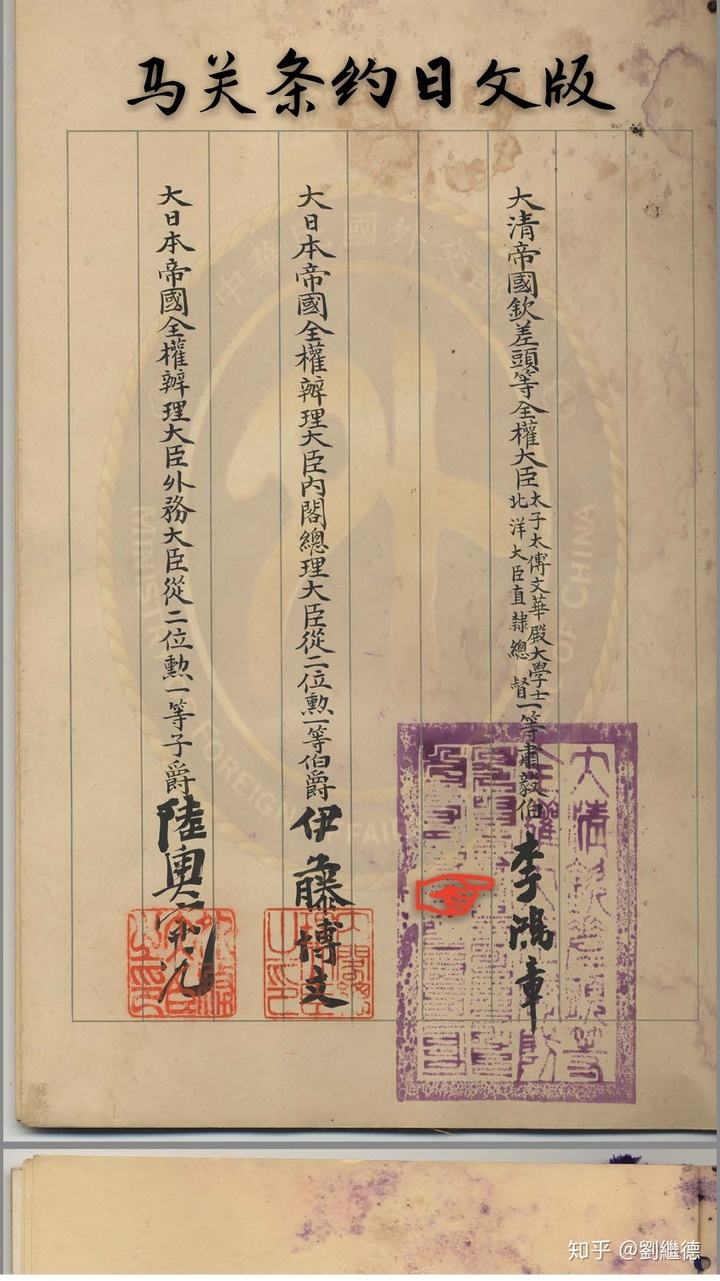 马关条约日文版
大清帝國欽差頭等全權大臣太子太傅文華殿大學士北洋大臣直隸總督一等肅毅伯李鴻章
大日本帝國全權辨理大臣内閣總理大臣從二位勲一等伯爵伊藤博文
大日本帝國全權辨理大臣外務大臣從二位勲一等子爵陸奧宗光
大清欽差頭等
FOREIGN
CHINA
知乎 @劉繼德